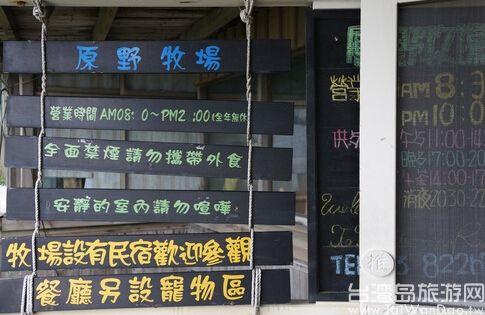 原野牧場
營業時間AM08: 0~PM2 :00(全年無休
全面禁煙請勿攜帶外食
安靜的室內請勿喧嘩
牧場設有民宿歡迎參觀
餐廳另設寵物區
營業
AM 8:3
PM 10:0
供
午5 11:00-14
晚5 17:00-2
14:00-17
消夜20:30-22
TEL
8226
推
台湾岛旅游网
www.TaiWanDao.tw